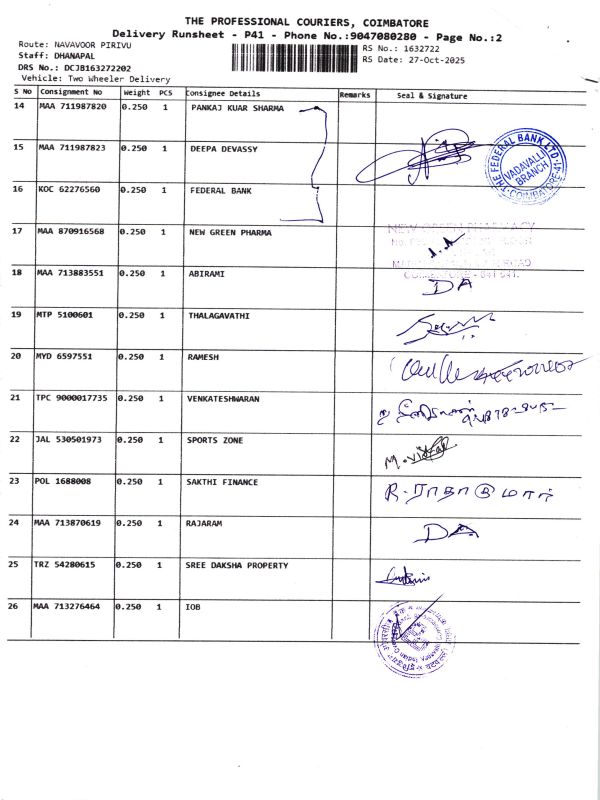 THE PROFESSIONAL COURIERS, COIMBATORE
Delivery Runsheet - P41 - Phone No.:9047080280 - Page No.:2
Route: NAVAVOOR PIRIVU
Staff: DHANAPAL
DRS No.: DCJB163272202
Vehicle: Two Wheeler Delivery
RS No.: 1632722
RS Date: 27-Oct-2025
S No Consignment No Weight PCS Consignee Details Remarks Seal & Signature
14 MAA 711987820 0.250 1 PANKAJ KUAR SHARMA
15 MAA 711987823 0.250 1 DEEPA DEVASSY
THE FEDERAL BANK LTD.
VADAVALLI
BRANCH
COIMBATORE-41
16 KOC 62276560 0.250 1 FEDERAL BANK
17 MAA 870916568 0.250 1 NEW GREEN PHARMA
NEW GREEN PHARMACY
ROAD
COIMBATORE - 641 041.
18 MAA 713883551 0.250 1 ABIRAMI
DA
19 MTP 5100601 0.250 1 THALAGAVATHI
20 MYD 6597551 0.250 1 RAMESH
21 TPC 9000017735 0.250 1 VENKATESHWARAN
22 JAL 530501973 0.250 1 SPORTS ZONE
23 POL 1688008 0.250 1 SAKTHI FINANCE
24 MAA 713870619 0.250 1 RAJARAM
DA
25 TRZ 54280615 0.250 1 SREE DAKSHA PROPERTY
26 MAA 713276464 0.250 1 IOB